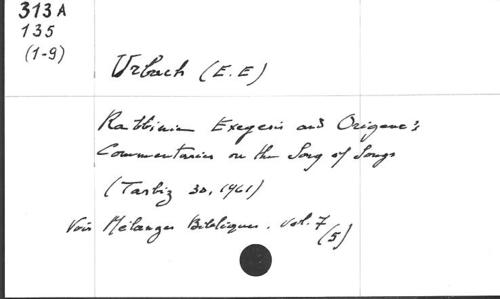 313 A
135
(1-9)
Urbach (E.E)
Rabbinic Exegesis and Origene's
Commentaries on the Song of Songs
(Tarbiz 30, 1961)
Voir Mélanges Bibliques. vol. 7
(5)